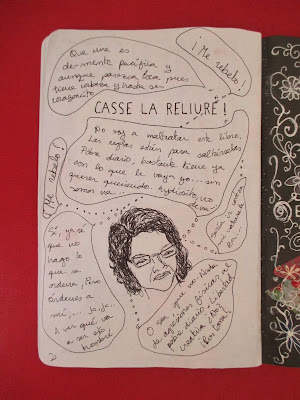 Que una es
de mente pacífica y
aunque parezca loca pues
tiene cabeza y hasta su
corazoncito
¡Me rebelo!
CASSE LA RELIURE !
No voy a maltratar este libro.
Las reglas están para saltárselas
Pobre diario, bastante tiene ya
con lo que le vaya yo... sin
querer queriendo.
somos
¡Me rebelo!
Sí, ya sé
que no
hago lo
que se
ordena, pero
órdenes a
mí,... ja, ja..
A ver qué va
a ser esto,
hombre!
O sea que no
de agresiones físicas al
pobre diario. Libertad
creativa ¿No?
Pos toma!
2